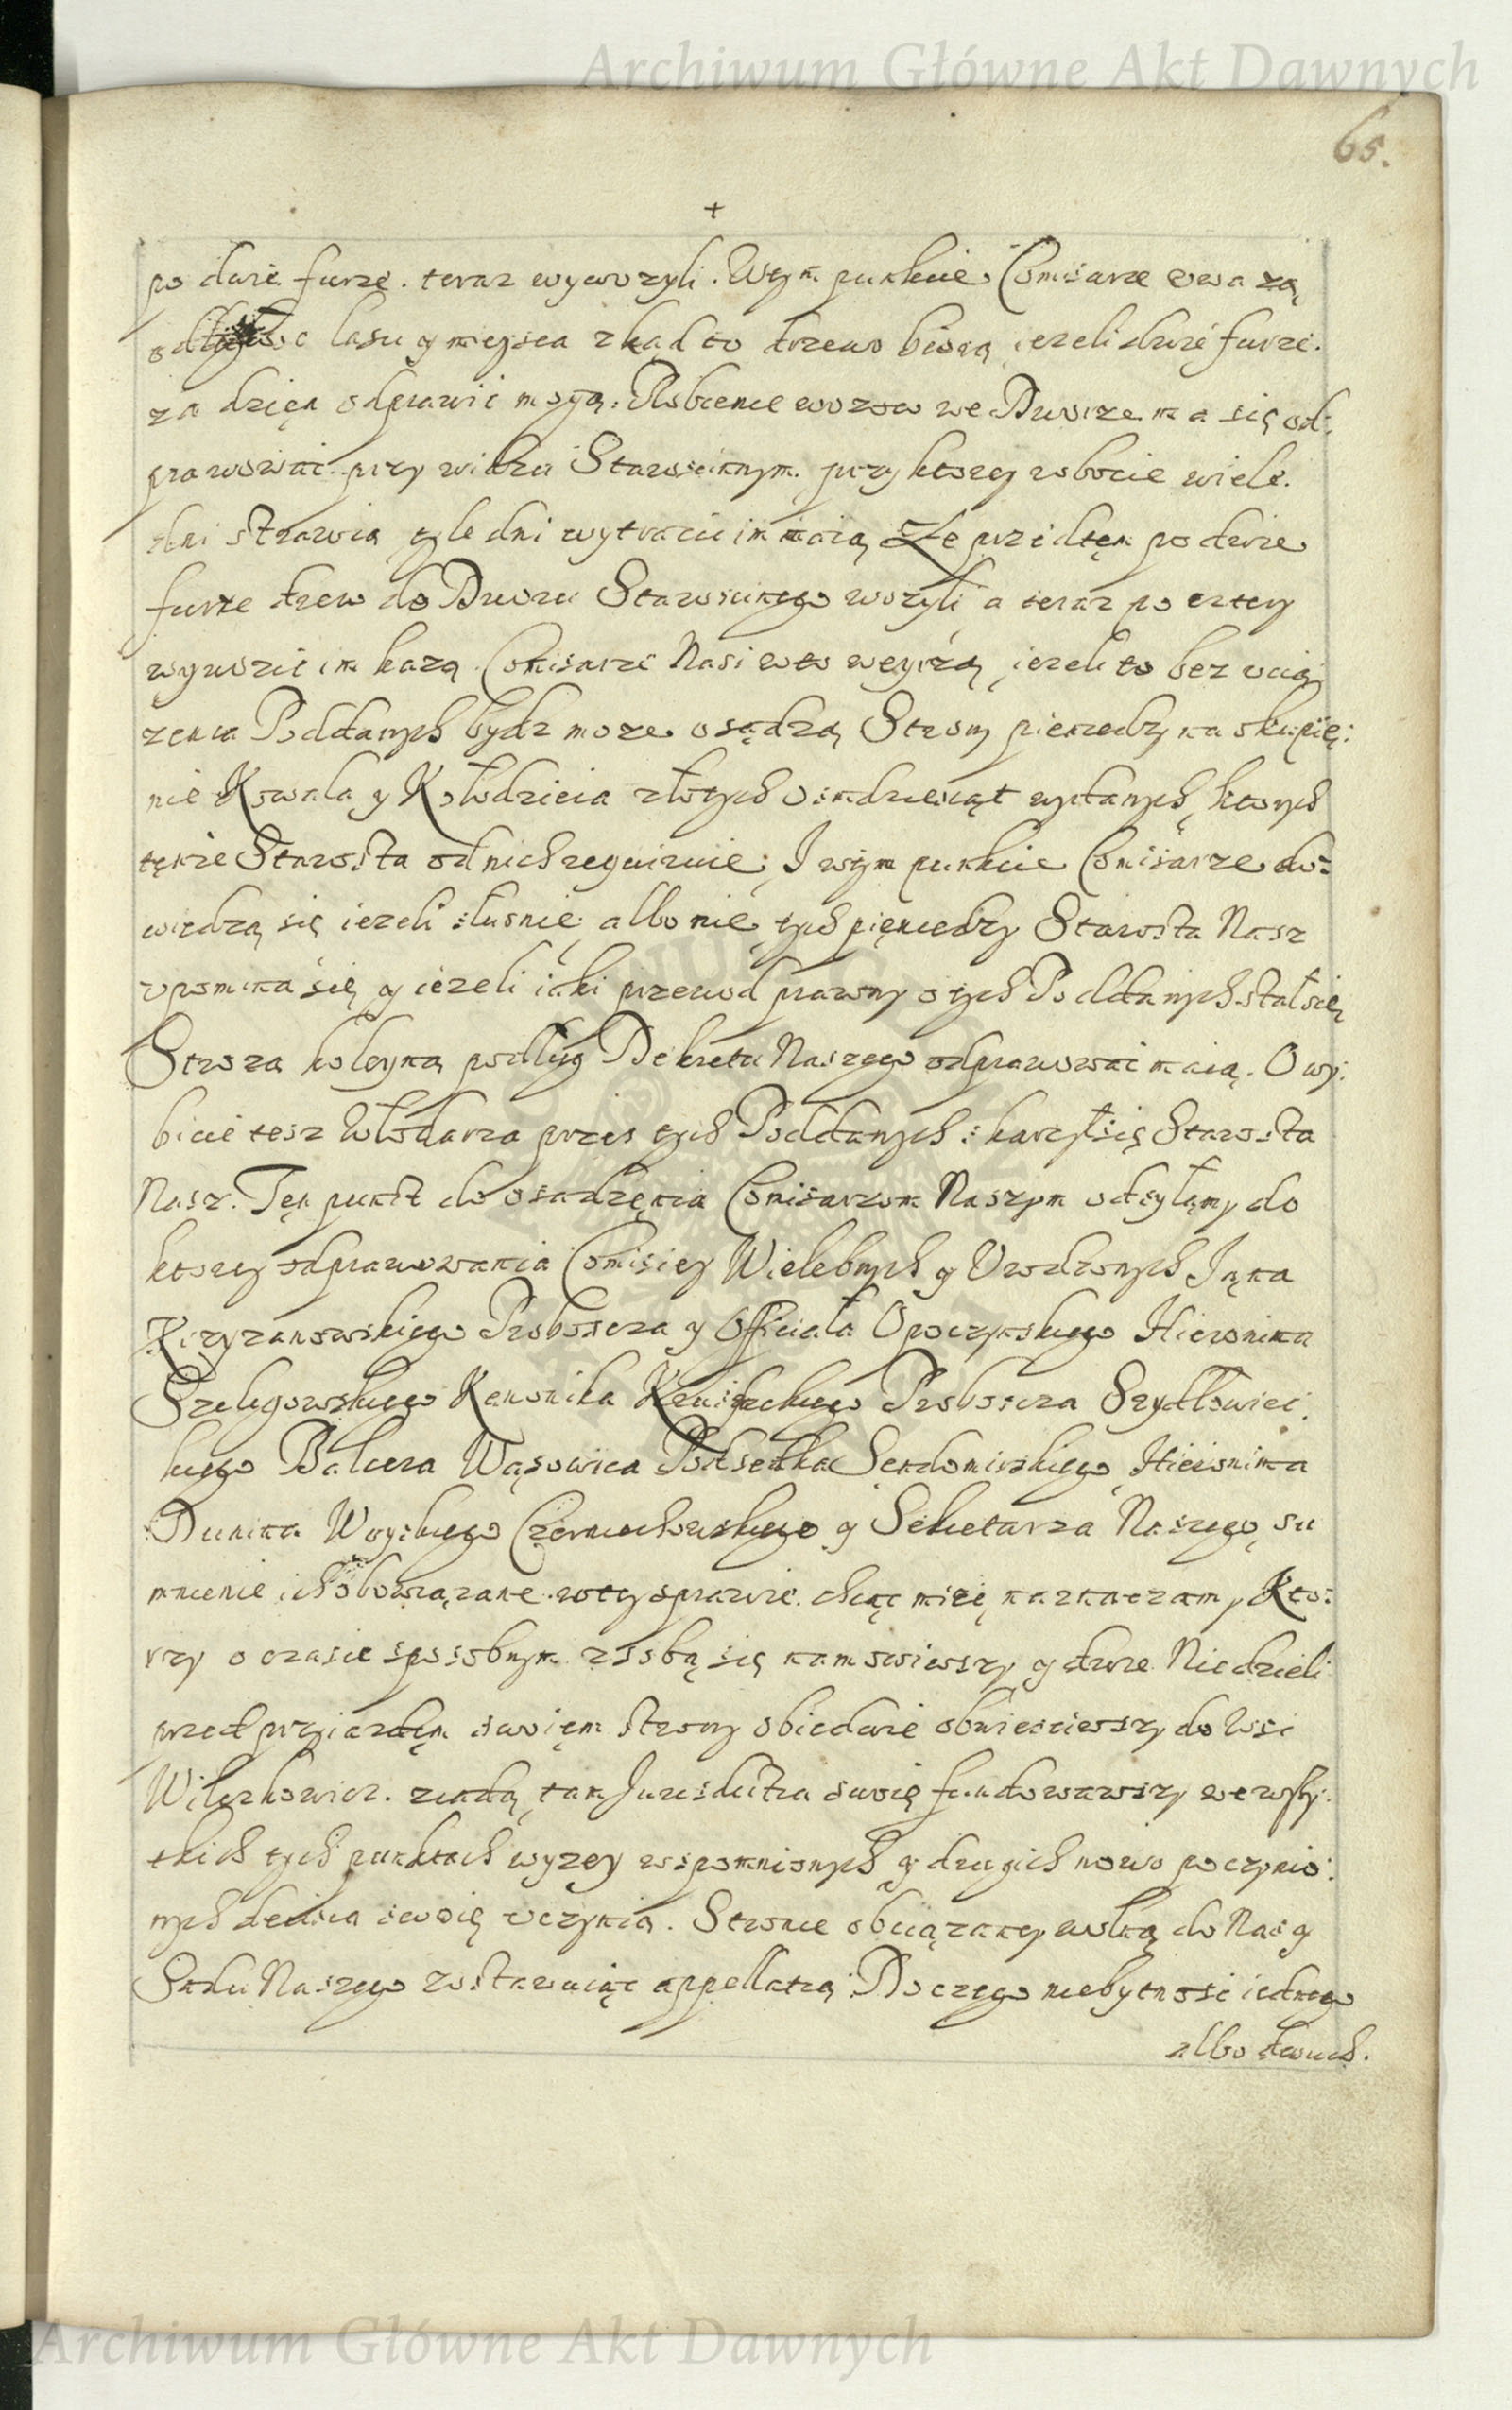 Archiwum Główne Akt Dawnych
65.
+
po dwie furze. teraz wywozyli. Wtym punkcie Comisarze vwazą
odległosc lasu y mieysca zkąd to drzewo biorą iezeli dwie furze.
za dzięn odprawić mogą: Robienie wozow we Dworze ma się od:
prawować. przy widzu Starościnnym. przy ktorey robocie wiele.
dni strawią tyle dni wytrącic im maią Ze przedtęm po dwie
furze drzew do Dworu Starościnego wozyli a teraz po cztery
wywozić im kazą. Comisarze Nasi wto weyrzą, iezeli to bez vcią
zenia Poddanych bydz moze osądzą Strony pieniedzy na skupię:
nie Kowala y Kołodzieia złotych osmdziesiąt wydanych, ktorych
tęnze Starosta od nich requiruie; I wtym punkcie Comisarze do:
wiedzą się iezeli słusnie. albo nie, tych pięniedzy Starosta Nasz
vpomina się y iezeli iaki przewod prawny o tych Poddanych stał się
Stroza koleyną podług Dekretu Naszego odprawować maią. O wy:
bicie tesz Włodarza przes tych Poddanych skarzył się Starosta
Nasz. Tęn punkt do osadzęnia Comisarzom Naszym odsyłamy do
ktorey odprawowania Comisiey Wielebnych y Vrodzonych Jana
Krzyzanowskiego Proboscza y Officiała Opoczynskiego Hieronima
Szeligowskiego Kanonika Kruszwickiego Proboscza Szydłowiec:
kiego Balcera Wąsowica Podsędka Sendomirskiego, Hieronima
Dunina Woyskiego Czerniechowskiego y Sekretarza Naszego, su
mnienie ich obowiązane wtey sprawie. chcąc mieć, naznaczamy, Kto:
rzy o czasie sposobnym z sobą się namowiwszy y dwie Niedzieli
przed przyiazdęm swoięm strony obiedwie obwiesciwszy do Wsi
ziadą, tam Jurisdictia swoię fundowawszy we wszy:
tkich tych punktach wyzey wspomnionych y drugich nowo poczynio:
nych decisia swoię vczynią. Stronie obciązaney wolną do Nas y
Sadu Naszego zostawuiąc appellatią. Do czego niebytnosć iednego
albo dwuch.
Archiwum Główne Akt Dawnych